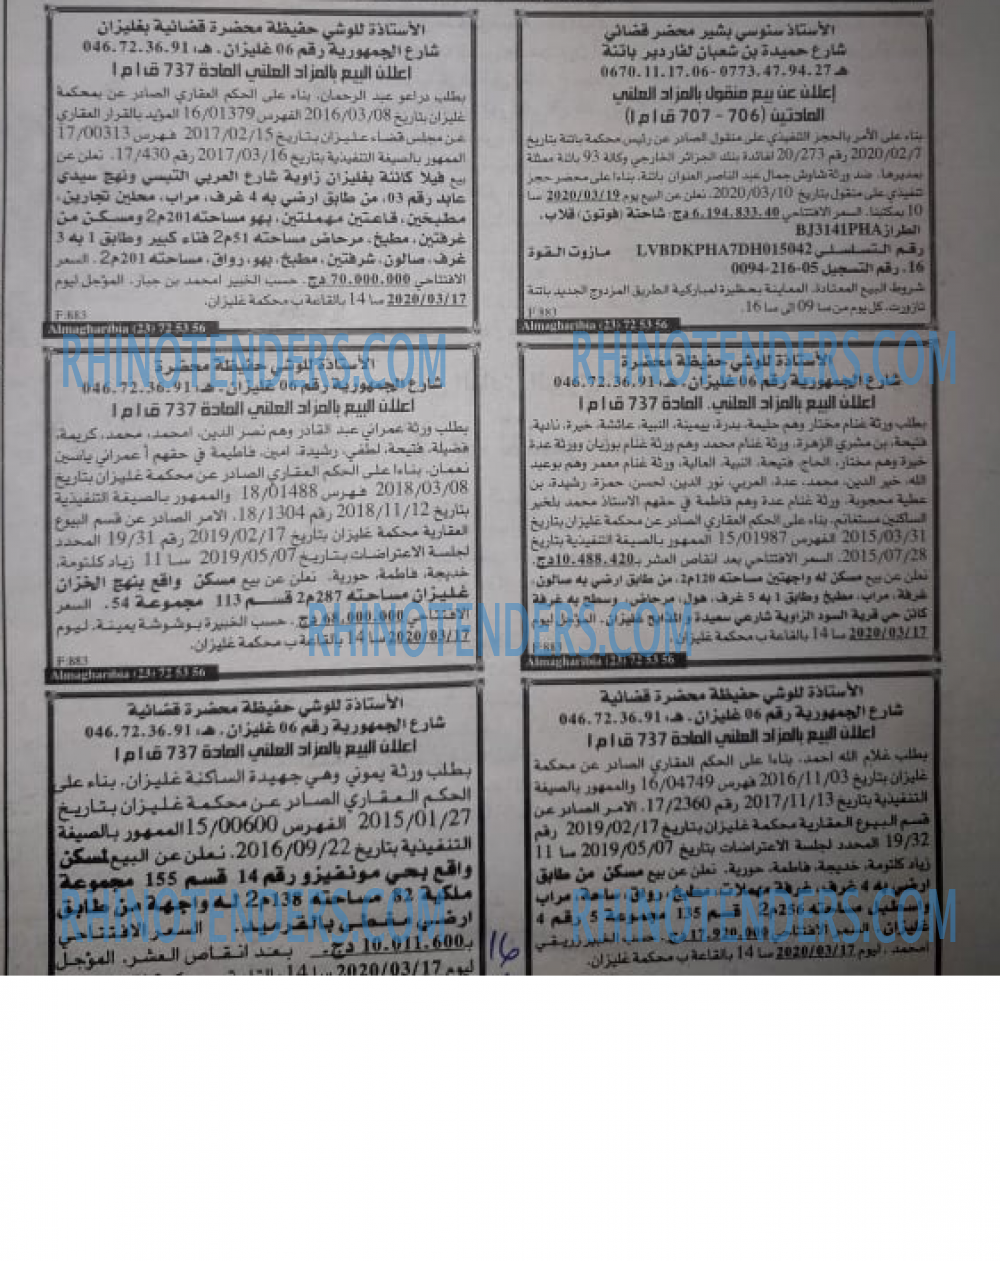 الأستاذ سنوسي بشير محضر قضائي
شارع حميدة بن شعبان لفاردير باتنة
هـ 0773.47.94.27-0670.11.17.06
إعلان عن بيع منقول بالمزاد العلني
المادتين (706 - 707 ق إ م ا)
بناء على الأمر بالحجز التنفيذي على منقول الصادر عن رئيس محكمة باتنة بتاريخ
2020/02/7 رقم 20/273 لفائدة بنك الجزائر الخارجي وكالة 93 باتنة ممثلة
بمديرها. ضد ورثة شاوش جمال عبد الناصر العنوان باتنة. بناءا على محضر حجز
تنفيذي على منقول بتاريخ 2020/03/10. نعلن عن البيع يوم 2020/03/19 سا
10 بمكتبنا. السعر الافتتاحي 6.194.833.40 دج: شاحنة (فوتون) قلاب.
الطراز BJ3141PHA
رقم التسلسلي LVBDKPHA7DH015042 مازوت القوة
16. رقم التسجيل 05-216-0094
شروط البيع المعتادة. المعاينة بحظيرة لمباركية الطريق المزدوج الجديد باتنة
تازورت. كل يوم من سا 09 الى سا 16.
F:883
Almagharibia (23) 72 53 56
الأستاذة للوشي حفيظة محضرة قضائية بغليزان
شارع الجمهورية رقم 06 غليزان. هـ: 046.72.36.91
اعلان البيع بالمزاد العلني المادة 737 ق ا م ا
بطلب دراعو عبد الرحمان. بناء على الحكم العقاري الصادر عن بمحكمة
غليزان بتاريخ 2016/03/08 الفهرس 16/01379 المؤيد بالقرار العقاري
عن مجلس قضاء غليزان بتاريخ 2017/02/15 فهرس 17/00313
الممهور بالصيغة التنفيذية بتاريخ 2017/03/16 رقم 17/430. نعلن عن
بيع فيلا كائنة بغليزان زاوية شارع العربي التبسي ونهج سيدي
عابد رقم 03. من طابق ارضي به 4 غرف، مراب، محلين تجارين،
مطبخين، قاعتين مهملتين، بهو مساحته 201م2 ومسكن من
غرفتين، مطبخ، مرحاض مساحته 51م2 فناء كبير وطابق 1 به 3
غرف، صالون، شرفتين، مطبخ، بهو، رواق، مساحته 201م2. السعر
الافتتاحي 70.000.000 دج. حسب الخبير امحمد بن جبار. المؤجل ليوم
2020/03/17 سا 14 بالقاعة ب محكمة غليزان.
F:883
Almagharibia (23) 72 53 56
الأستاذة للوشي حفيظة محضرة
شارع الجمهورية رقم 06 غليزان. هـ: 046.72.36.91
اعلان البيع بالمزاد العلني. المادة 737 ق ا م ا
بطلب ورثة غنام مختار وهم حليمة، بدرة، يمينة، النبية، عائشة، خيرة، نادية،
فتيحة، بن مشري الزهرة. ورثة غنام محمد وهم ورثة غنام بوزيان وورثة عدة
خيرة وهم مختار، الحاج، فتيحة، النبية، العالية، ورثة غنام معمر وهم بوعبد
الله، خير الدين، محمد، عدة، العربي، نور الدين، لحسن، حمزة، رشيدة، بن
عطية محجوبة. ورثة غنام عدة وهم فاطمة في حقهم الاستاذ محمد بلخير
الساكنين مستغانم. بناء على الحكم العقاري الصادر عن محكمة غليزان بتاريخ
2015/03/31 الفهرس 15/01987 الممهور بالصيغة التنفيذية بتاريخ
2015/07/28. السعر الافتتاحي بعد انقاص العشر بـ 10.488.420دج.
نعلن عن بيع مسكن له واجهتين مساحته 120م2. من طابق ارضي به صالون،
غرفة، مراب، مطبخ وطابق 1 به 5 غرف، هول، مرحاض، وسطح به غرفة
كائن حي قرية السود الزاوية شارعي سعيدة والمذابح غليزان. المؤجل ليوم
2020/03/17 سا 14 بالقاعة ب محكمة غليزان.
F:883
Almagharibia (23) 72 53 56
الأستاذة للوشي حفيظة محضرة
شارع الجمهورية رقم 06 غليزان. هـ: 046.72.36.91
اعلان البيع بالمزاد العلني المادة 737 ق ا م ا
بطلب ورثة عمراني عبد القادر وهم نصر الدين، امحمد، محمد، كريمة،
فضيلة، فتيحة، لطفي، رشيدة، امين، فاطيمة في حقهم أ عمراني ياسين
نعمان. بناءا على الحكم العقاري الصادر عن محكمة غليزان بتاريخ
2018/03/08 فهرس 18/01488 والممهور بالصيغة التنفيذية
بتاريخ 2018/11/12 رقم 18/1304. الامر الصادر عن قسم البيوع
العقارية محكمة غليزان بتاريخ 2019/02/17 رقم 19/31 المحدد
لجلسة الاعتراضات بتاريخ 2019/05/07 سا 11 زياد كلثومة،
خديجة، فاطمة، حورية. نعلن عن بيع مسكن واقع بنهج الخزان
غليزان مساحته 287م2 قسم 113 مجموعة 54. السعر
الافتتاحي 68.000.000 دج. حسب الخبيرة بوشوشة يمينة. ليوم
2020/03/17 سا 14 بالقاعة ب محكمة غليزان.
F:883
Almagharibia (23) 72 53 56
الأستاذة للوشي حفيظة محضرة قضائية
شارع الجمهورية رقم 06 غليزان. هـ: 046.72.36.91
اعلان البيع بالمزاد العلني المادة 737 ق ا م ا
بطلب غلام الله احمد. بناءا على الحكم العقاري الصادر عن محكمة
غليزان بتاريخ 2016/11/03 فهرس 16/04749 والممهور بالصيغة
التنفيذية بتاريخ 2017/11/13 رقم 17/2360. الامر الصادر عن
قسم البيوع العقارية محكمة غليزان بتاريخ 2019/02/17 رقم
19/32 المحدد لجلسة الاعتراضات بتاريخ 2019/05/07 سا 11
زياد كلثومة، خديجة، فاطمة، حورية. نعلن عن بيع مسكن من طابق
ارضي به 4 غرف، غرفة مهملات، مطبخ، رواق، ساحة، مراب
مستطيل مساحته 256م2 قسم 135 مجموعة 5 رقم 4
غليزان. السعر الافتتاحي 17.920.000 دج. حسب الخبير زريقي
امحمد. ليوم 2020/03/17 سا 14 بالقاعة ب محكمة غليزان.
الأستاذة للوشي حفيظة محضرة قضائية
شارع الجمهورية رقم 06 غليزان. هـ: 046.72.36.91
اعلان البيع بالمزاد العلني المادة 737 ق ا م ا
بطلب ورثة يموني وهي جهيدة الساكنة غليزان. بناء على
الحكم العقاري الصادر عن محكمة غليزان بتاريخ
2015/01/27 الفهرس 15/00600 الممهور بالصيغة
التنفيذية بتاريخ 2016/09/22. نعلن عن البيع لمسكن
واقع بحي مونفيزو رقم 14 قسم 155 مجموعة
ملكية 82 مساحته 138م2 له واجهة من طابق
ارضي مغطى بالقرميد. السعر الافتتاحي
بـ 10.011.600 دج. بعد انقاص العشر. المؤجل
ليوم 2020/03/17 سا 14
16
RHINOTENDERS.COM
RHINOTENDERS.COM
RHINOTENDERS.COM
RHINOTENDERS.COM
RHINOTENDERS.COM